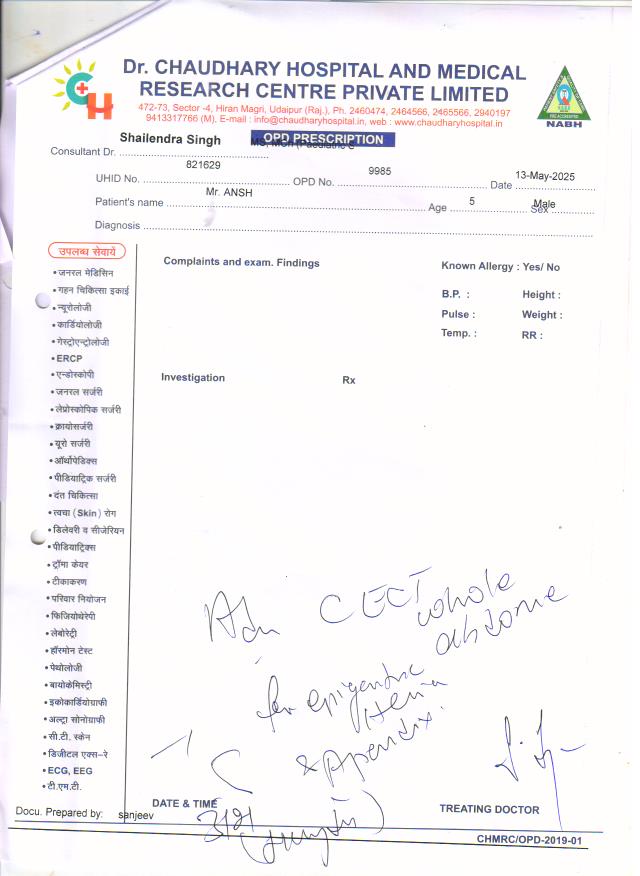 Dr. CHAUDHARY HOSPITAL AND MEDICAL
RESEARCH CENTRE PRIVATE LIMITED
472-73, Sector -4, Hiran Magri, Udaipur (Raj.), Ph. 2460474, 2464566, 2465566, 2940197
9413317766 (M), E-mail : info@chaudharyhospital.in, web : www.chaudharyhospital.in
NABH
OPD PRESCRIPTION
Consultant Dr. Shailendra Singh
UHID No. 821629 OPD No. 9985 Date 13-May-2025
Patient's name Mr. ANSH Age 5 Sex Male
Diagnosis
उपलब्ध सेवायें
• जनरल मेडिसिन
• गहन चिकित्सा इकाई
• न्यूरोलोजी
• कार्डियोलोजी
• गेस्ट्रोएन्ट्रोलोजी
• ERCP
• एन्डोस्कोपी
• जनरल सर्जरी
• लेप्रोस्कोपिक सर्जरी
• क्रायोसर्जरी
• यूरो सर्जरी
• ऑर्थोपेडिक्स
• पीडियाट्रिक सर्जरी
• दंत चिकित्सा
• त्वचा (Skin) रोग
• डिलेवरी व सीजेरियन
• पीडियाट्रिक्स
• ट्रॉमा केयर
• टीकाकरण
• परिवार नियोजन
• फिजियोथेरेपी
• लेबोरेट्री
• हॉरमोन टेस्ट
• पेथोलोजी
• बायोकेमिस्ट्री
• इकोकार्डियोग्राफी
• अल्ट्रा सोनोग्राफी
• सी.टी. स्केन
• डिजीटल एक्स-रे
• ECG, EEG
• टी.एम.टी.
Complaints and exam. Findings
Known Allergy : Yes/ No
B.P. : Height :
Pulse : Weight :
Temp. : RR :
Investigation Rx
Adv CECT whole
abdome
for epigastric
Hernia
& Appendix.
DATE & TIME
TREATING DOCTOR
Docu. Prepared by: sanjeev
CHMRC/OPD-2019-01